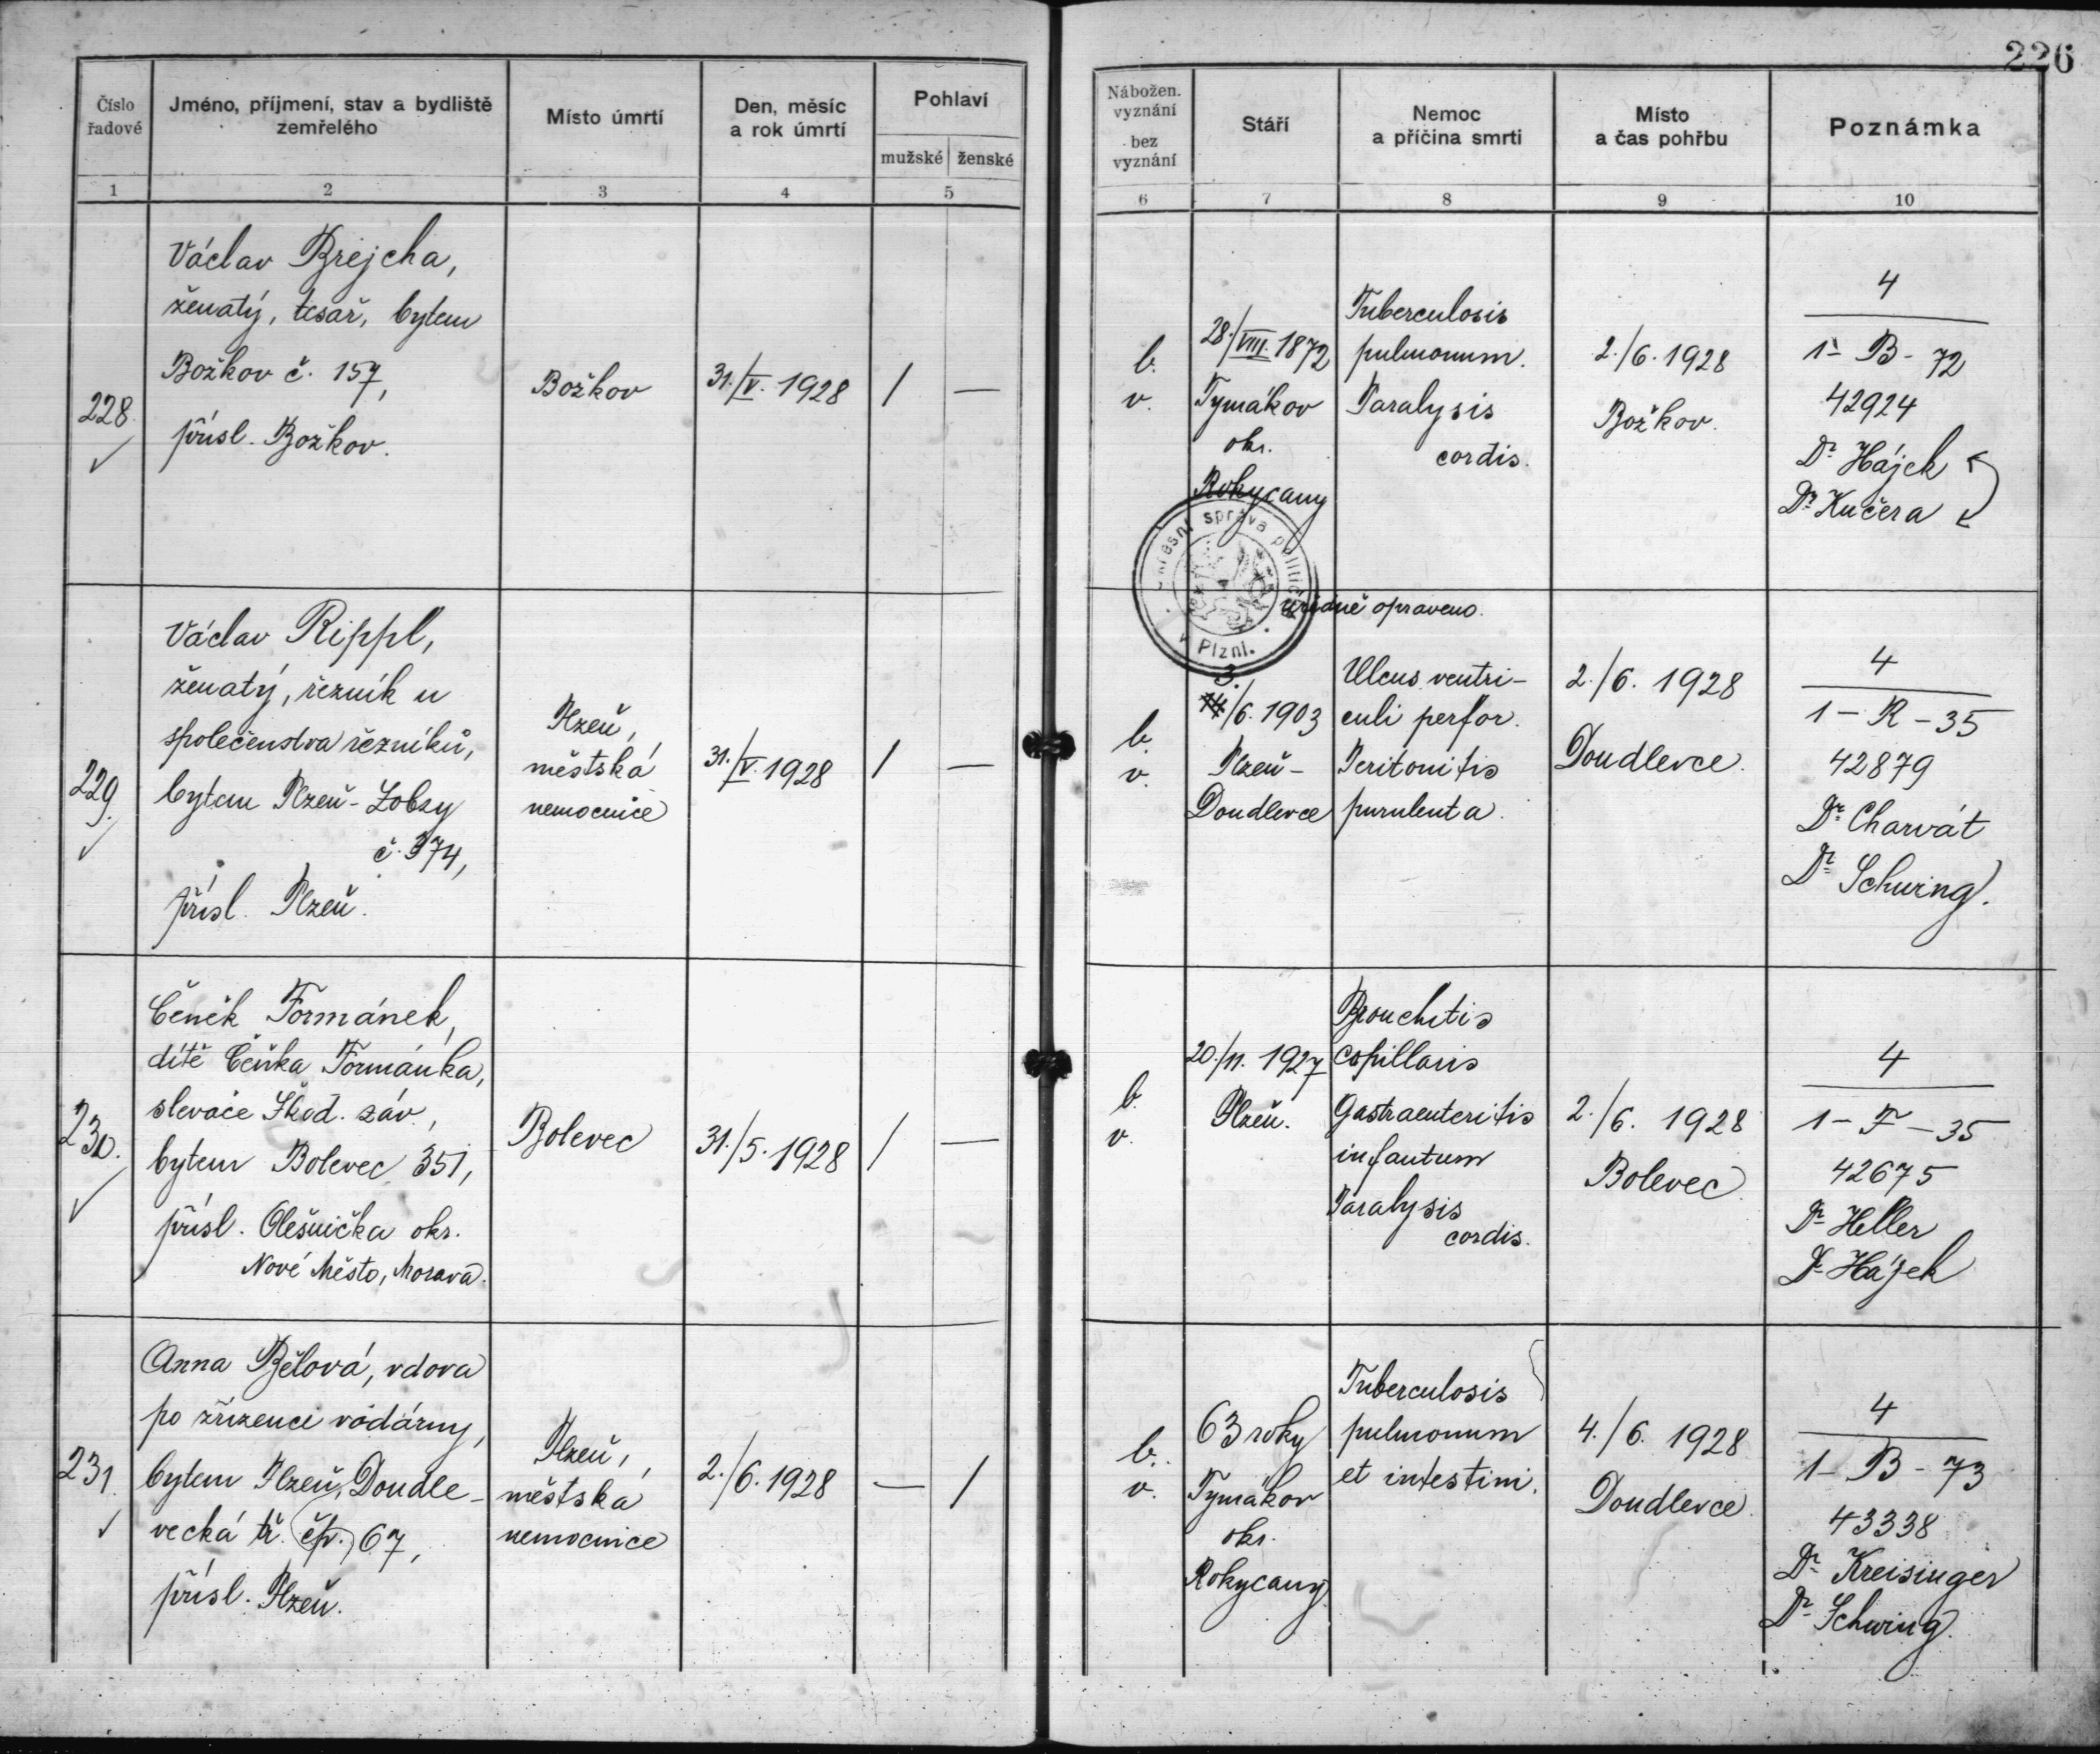 226
Číslo
řadové
Jméno, příjmení, stav a bydliště
zemřelého
Místo úmrtí
Den, měsíc
a rok úmrtí
Pohlaví
mužské ženské
Nábožen.
vyznání
bez
vyznání
Stáří
Nemoc
a příčina smrti
Místo
a čas pohřbu
Poznámka
1 2 3 4 5 6 7 8 9 10
228.
Václav Brejcha,
ženatý, tesař, bytem
Božkov č. 157,
přísl. Božkov.
Božkov
31./V. 1928
/ —
b.
v.
28./VIII. 1872
Tymákov
okr.
Rokycany
Tuberculosis
pulmonum.
Paralysis
cordis.
2./6. 1928
Božkov.
4
1 - B - 72
42924
Dr Hájek
Dr Kučera
Okresní správa politická
v Plzni.
úředně opraveno.
229.
Václav Rippl,
ženatý, řezník u
společenstva řezníků,
bytem Plzeň - Lobzy
č. 374,
přísl. Plzeň.
Plzeň,
městská
nemocnice
31./V. 1928
/ —
b.
v.
3.
14./6. 1903
Plzeň -
Doudlevce
Ulcus ventri-
culi perfor.
Peritonitis
purulenta.
2./6. 1928
Doudlevce.
4
1 - R - 35
42879
Dr Charvát
Dr Schwing.
230.
Čeněk Formánek,
dítě Čeňka Formánka,
slevače Škod. záv.,
bytem Bolevec 351,
přísl. Olešnička okr.
Nové Město, Morava.
Bolevec
31./5. 1928
/ —
b.
v.
20./11. 1927
Plzeň.
Bronchitis
capillaris
Gastraenteritis
infantum
Paralysis
cordis.
2./6. 1928
Bolevec.
4
1 - F - 35
42675
Dr Heller
Dr Hájek
231.
Anna Bělová, vdova
po zřízenci vodárny,
bytem Plzeň, Doudle-
vecká tř. čp. 67,
přísl. Plzeň.
Plzeň,
městská
nemocnice
2./6. 1928
— /
b.
v.
63 roky
Tymákov
okr.
Rokycany.
Tuberculosis
pulmonum
et intestini.
4./6. 1928
Doudlevce.
4
1 - B - 73
43338
Dr Kreisinger
Dr Schwing.